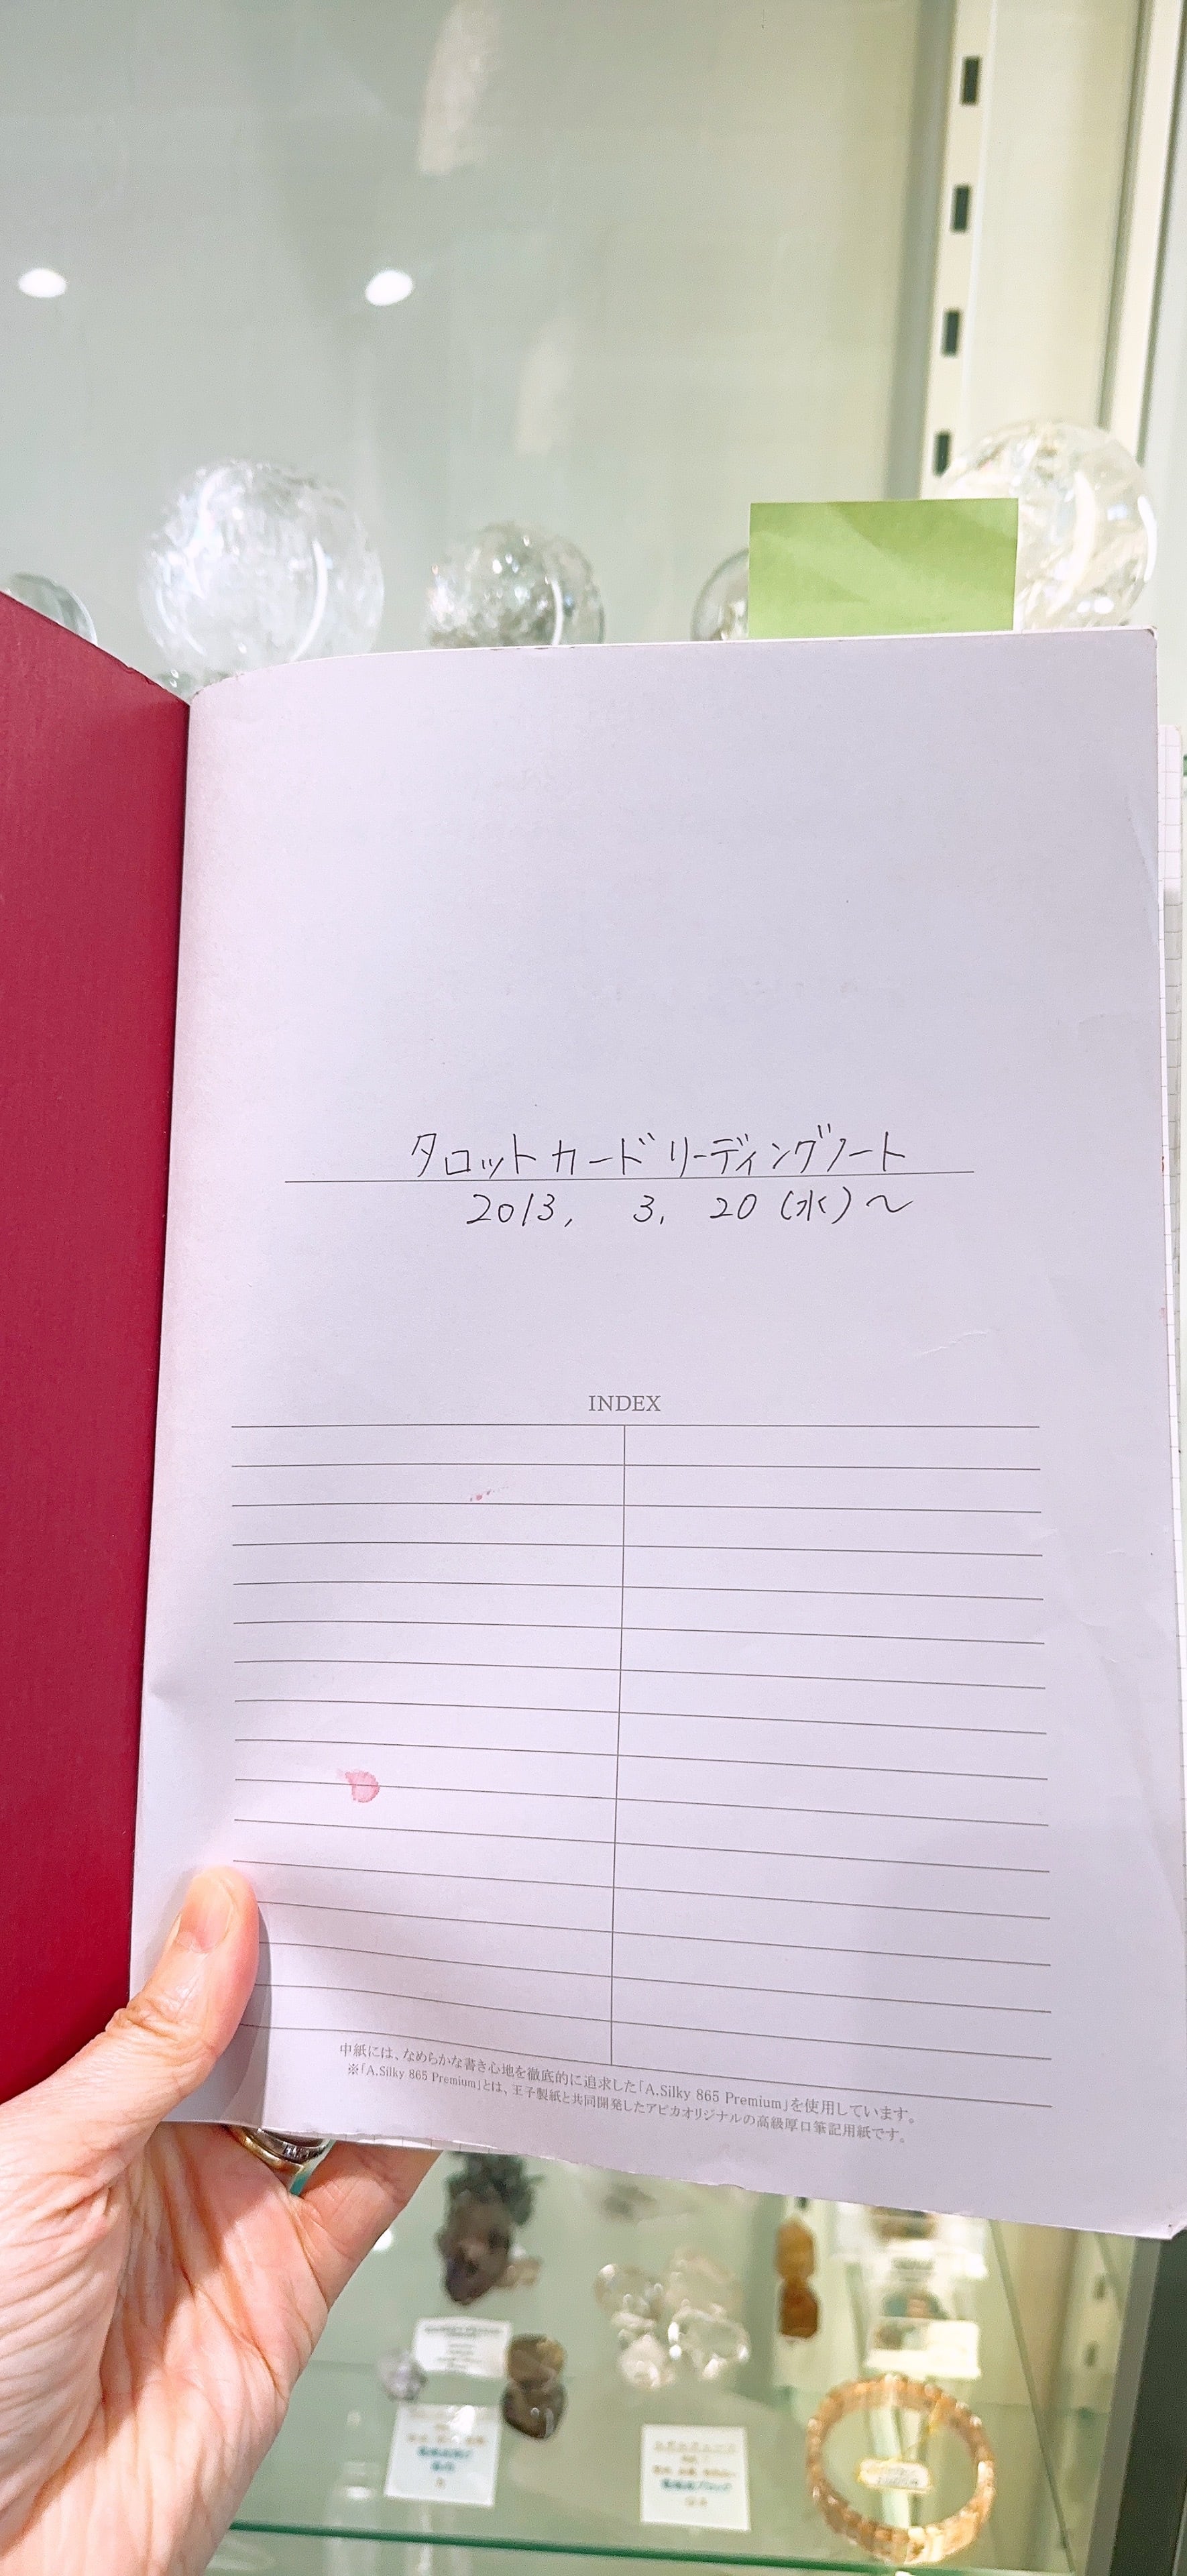 タロットカードリーディングノート
2013, 3, 20 (水)〜
INDEX
中紙には、なめらかな書き心地を徹底的に追求した「A.Silky 865 Premium」を使用しています。
※「A.Silky 865 Premium」とは、王子製紙と共同開発したアピカオリジナルの高級厚口筆記用紙です。